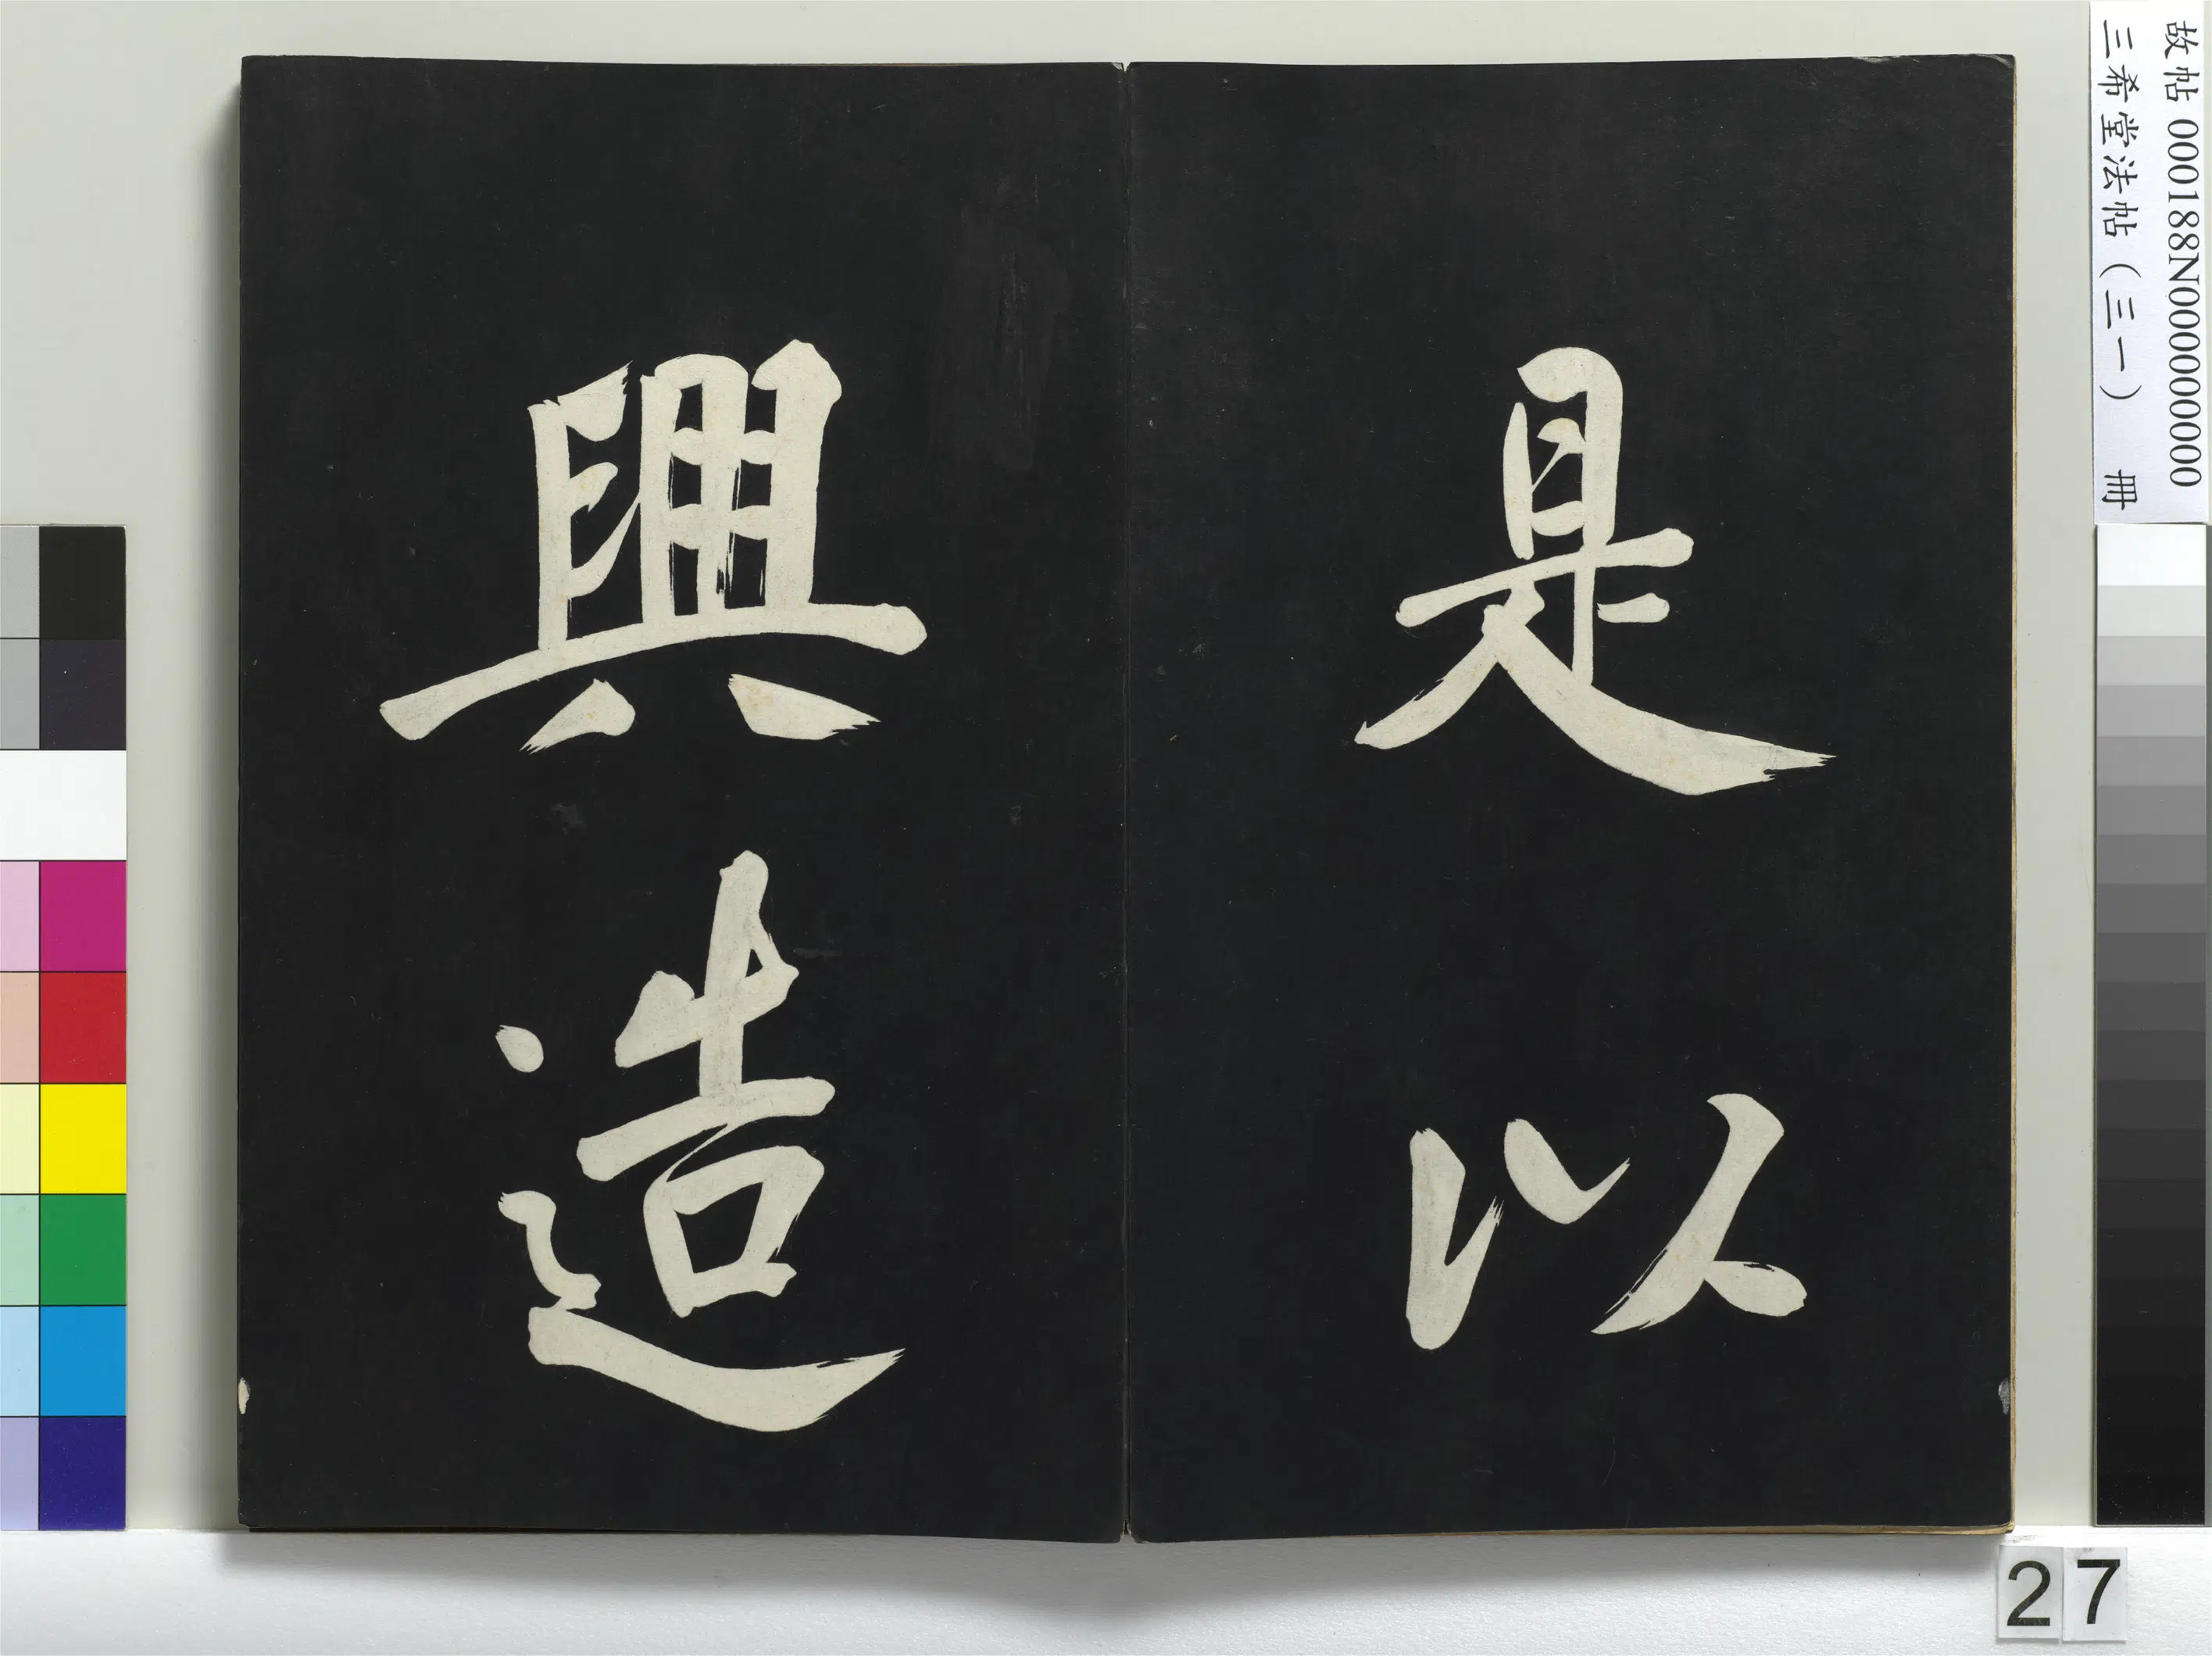 是以
興造
故帖000188N000000000
三希堂法帖（三一） 冊
27